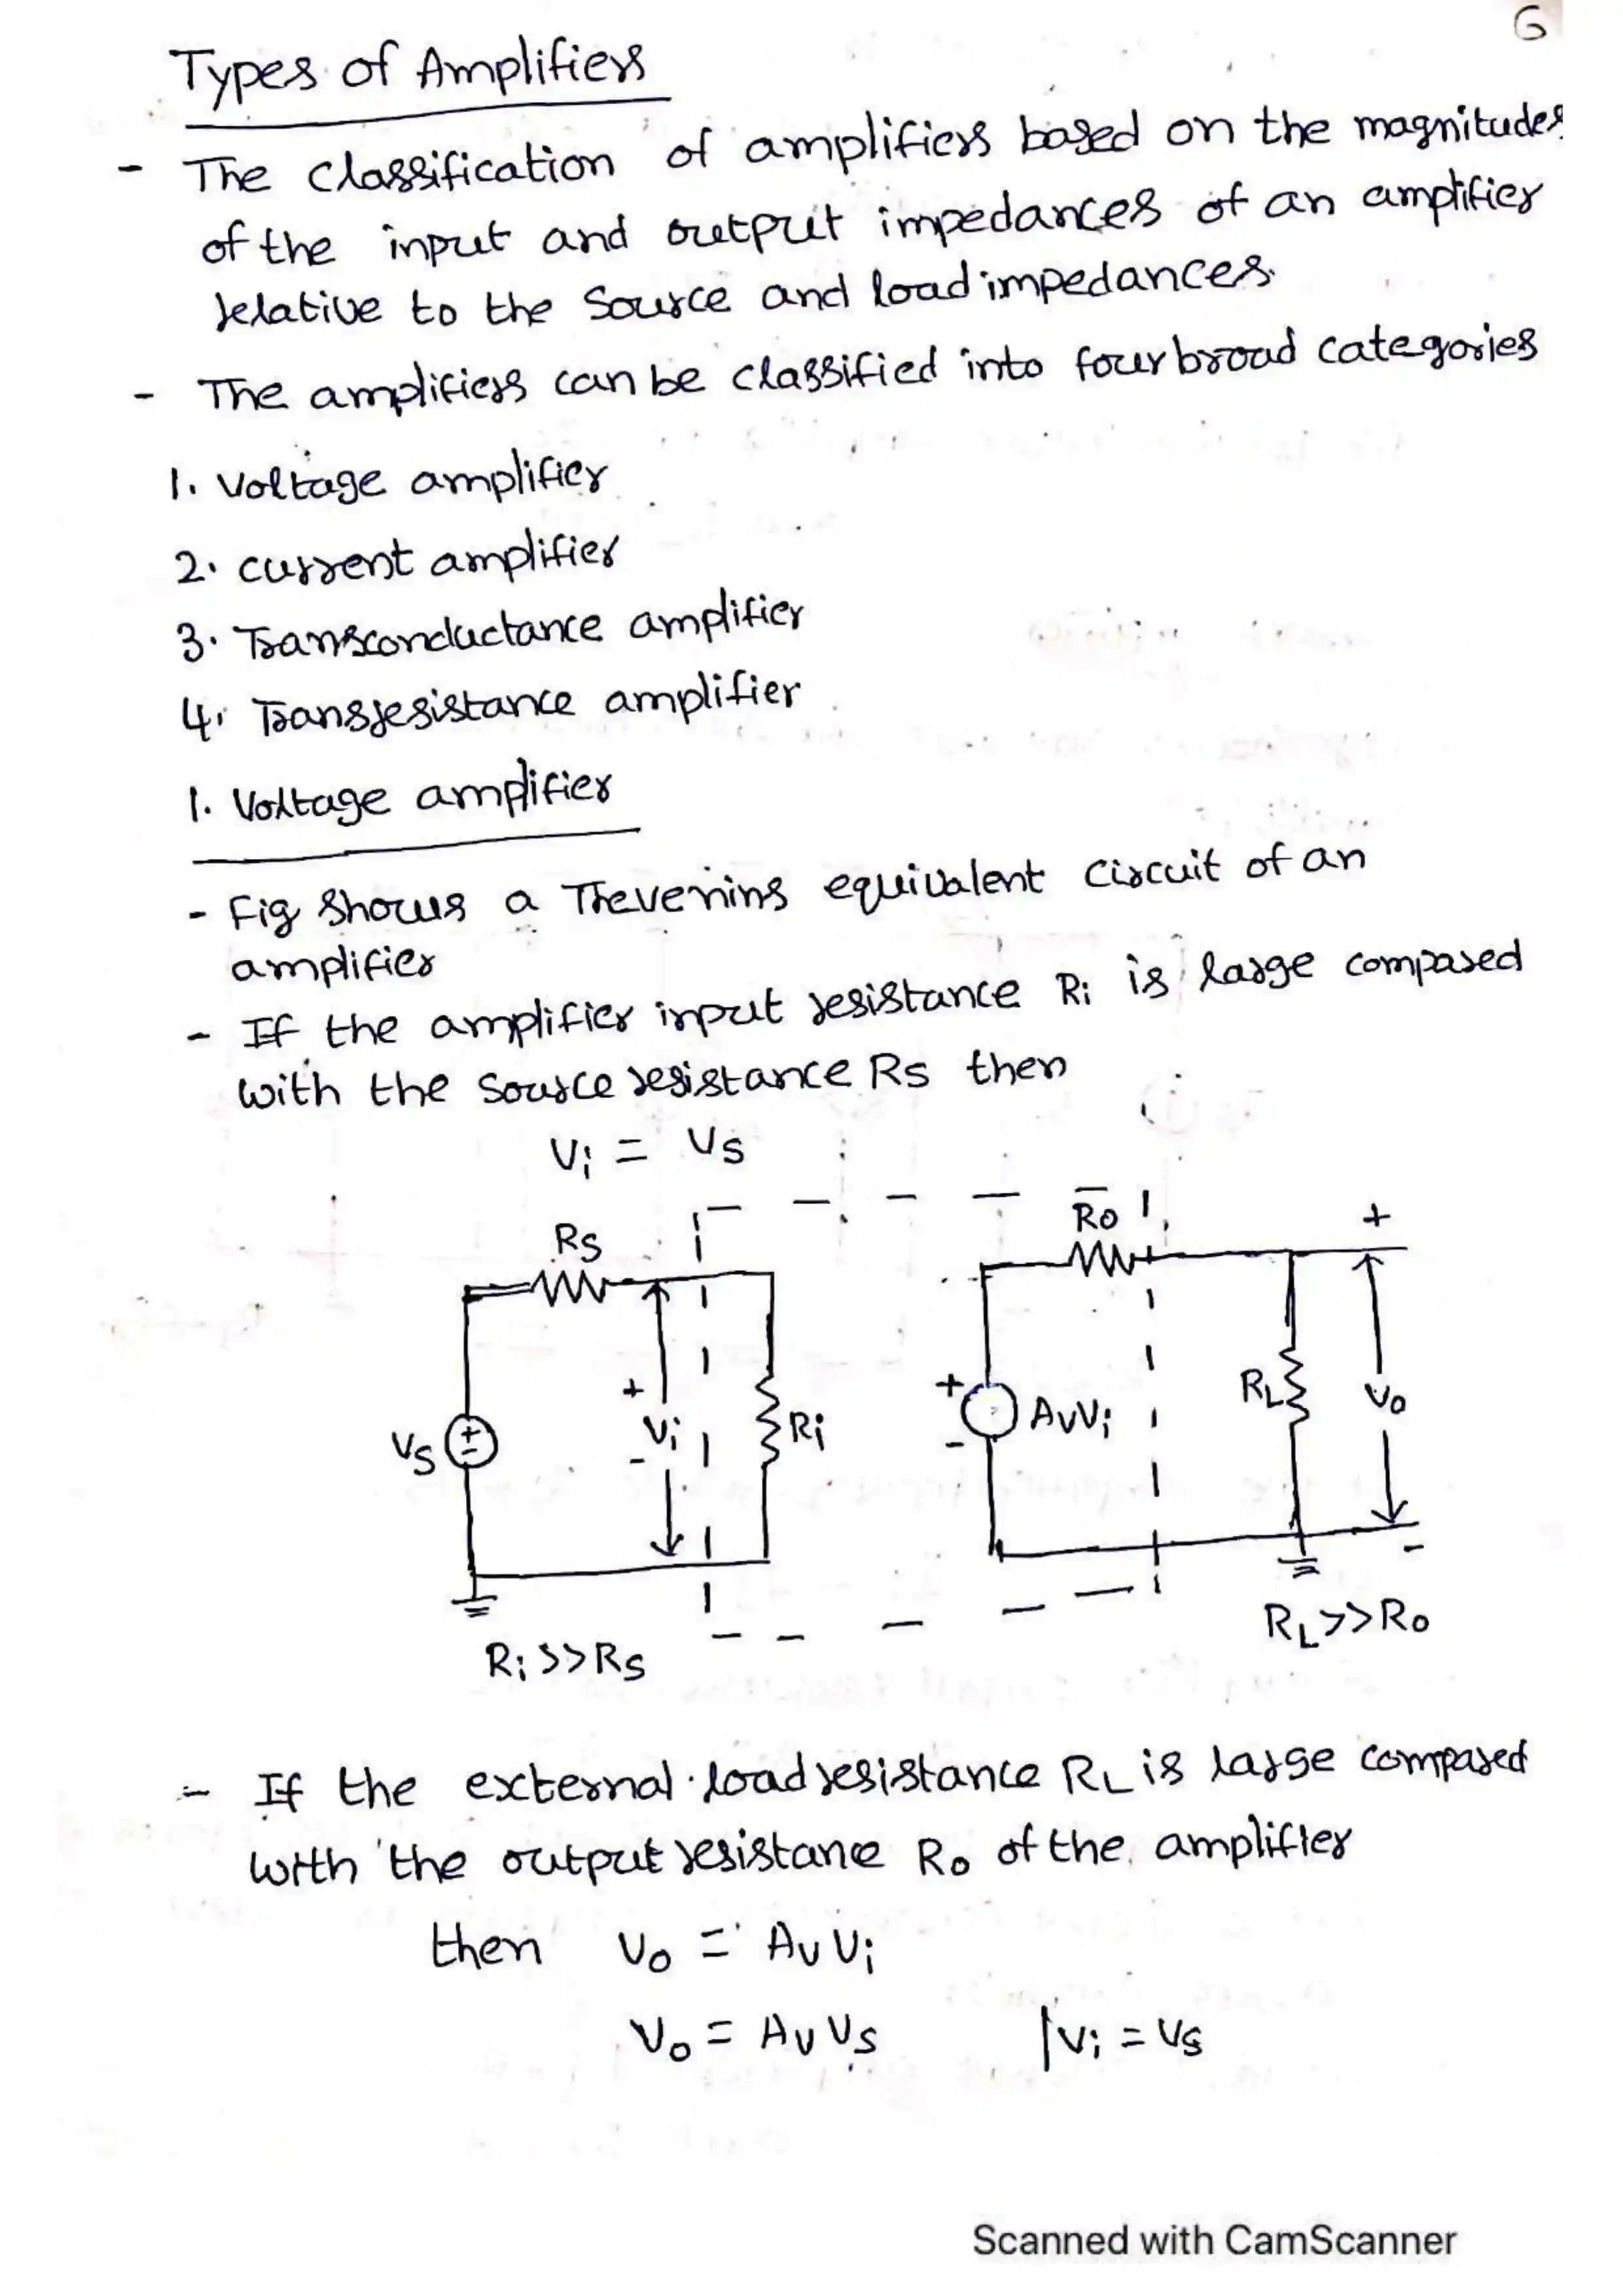 6
Types of Amplifiers
- The classification of amplifiers based on the magnitudes
of the input and output impedances of an amplifier
relative to the source and load impedances.
- The amplifiers can be classified into four broad categories
1. Voltage amplifier
2. current amplifier
3. Transconductance amplifier
4. Transresistance amplifier
1. Voltage amplifier
- Fig shows a Thevenins equivalent circuit of an
amplifier
- If the amplifier input resistance Ri is large compared
with the source resistance Rs then
Vi = Vs
Rs
Ro
+
Vs
+
-
+
Vi
-
Ri
+
-
AvVi
RL
Vo
-
Ri >> Rs
RL >> Ro
- If the external load resistance RL is large compared
with the output resistane Ro of the amplifier
then Vo = Av Vi
Vo = Av Vs | Vi = Vs
Scanned with CamScanner